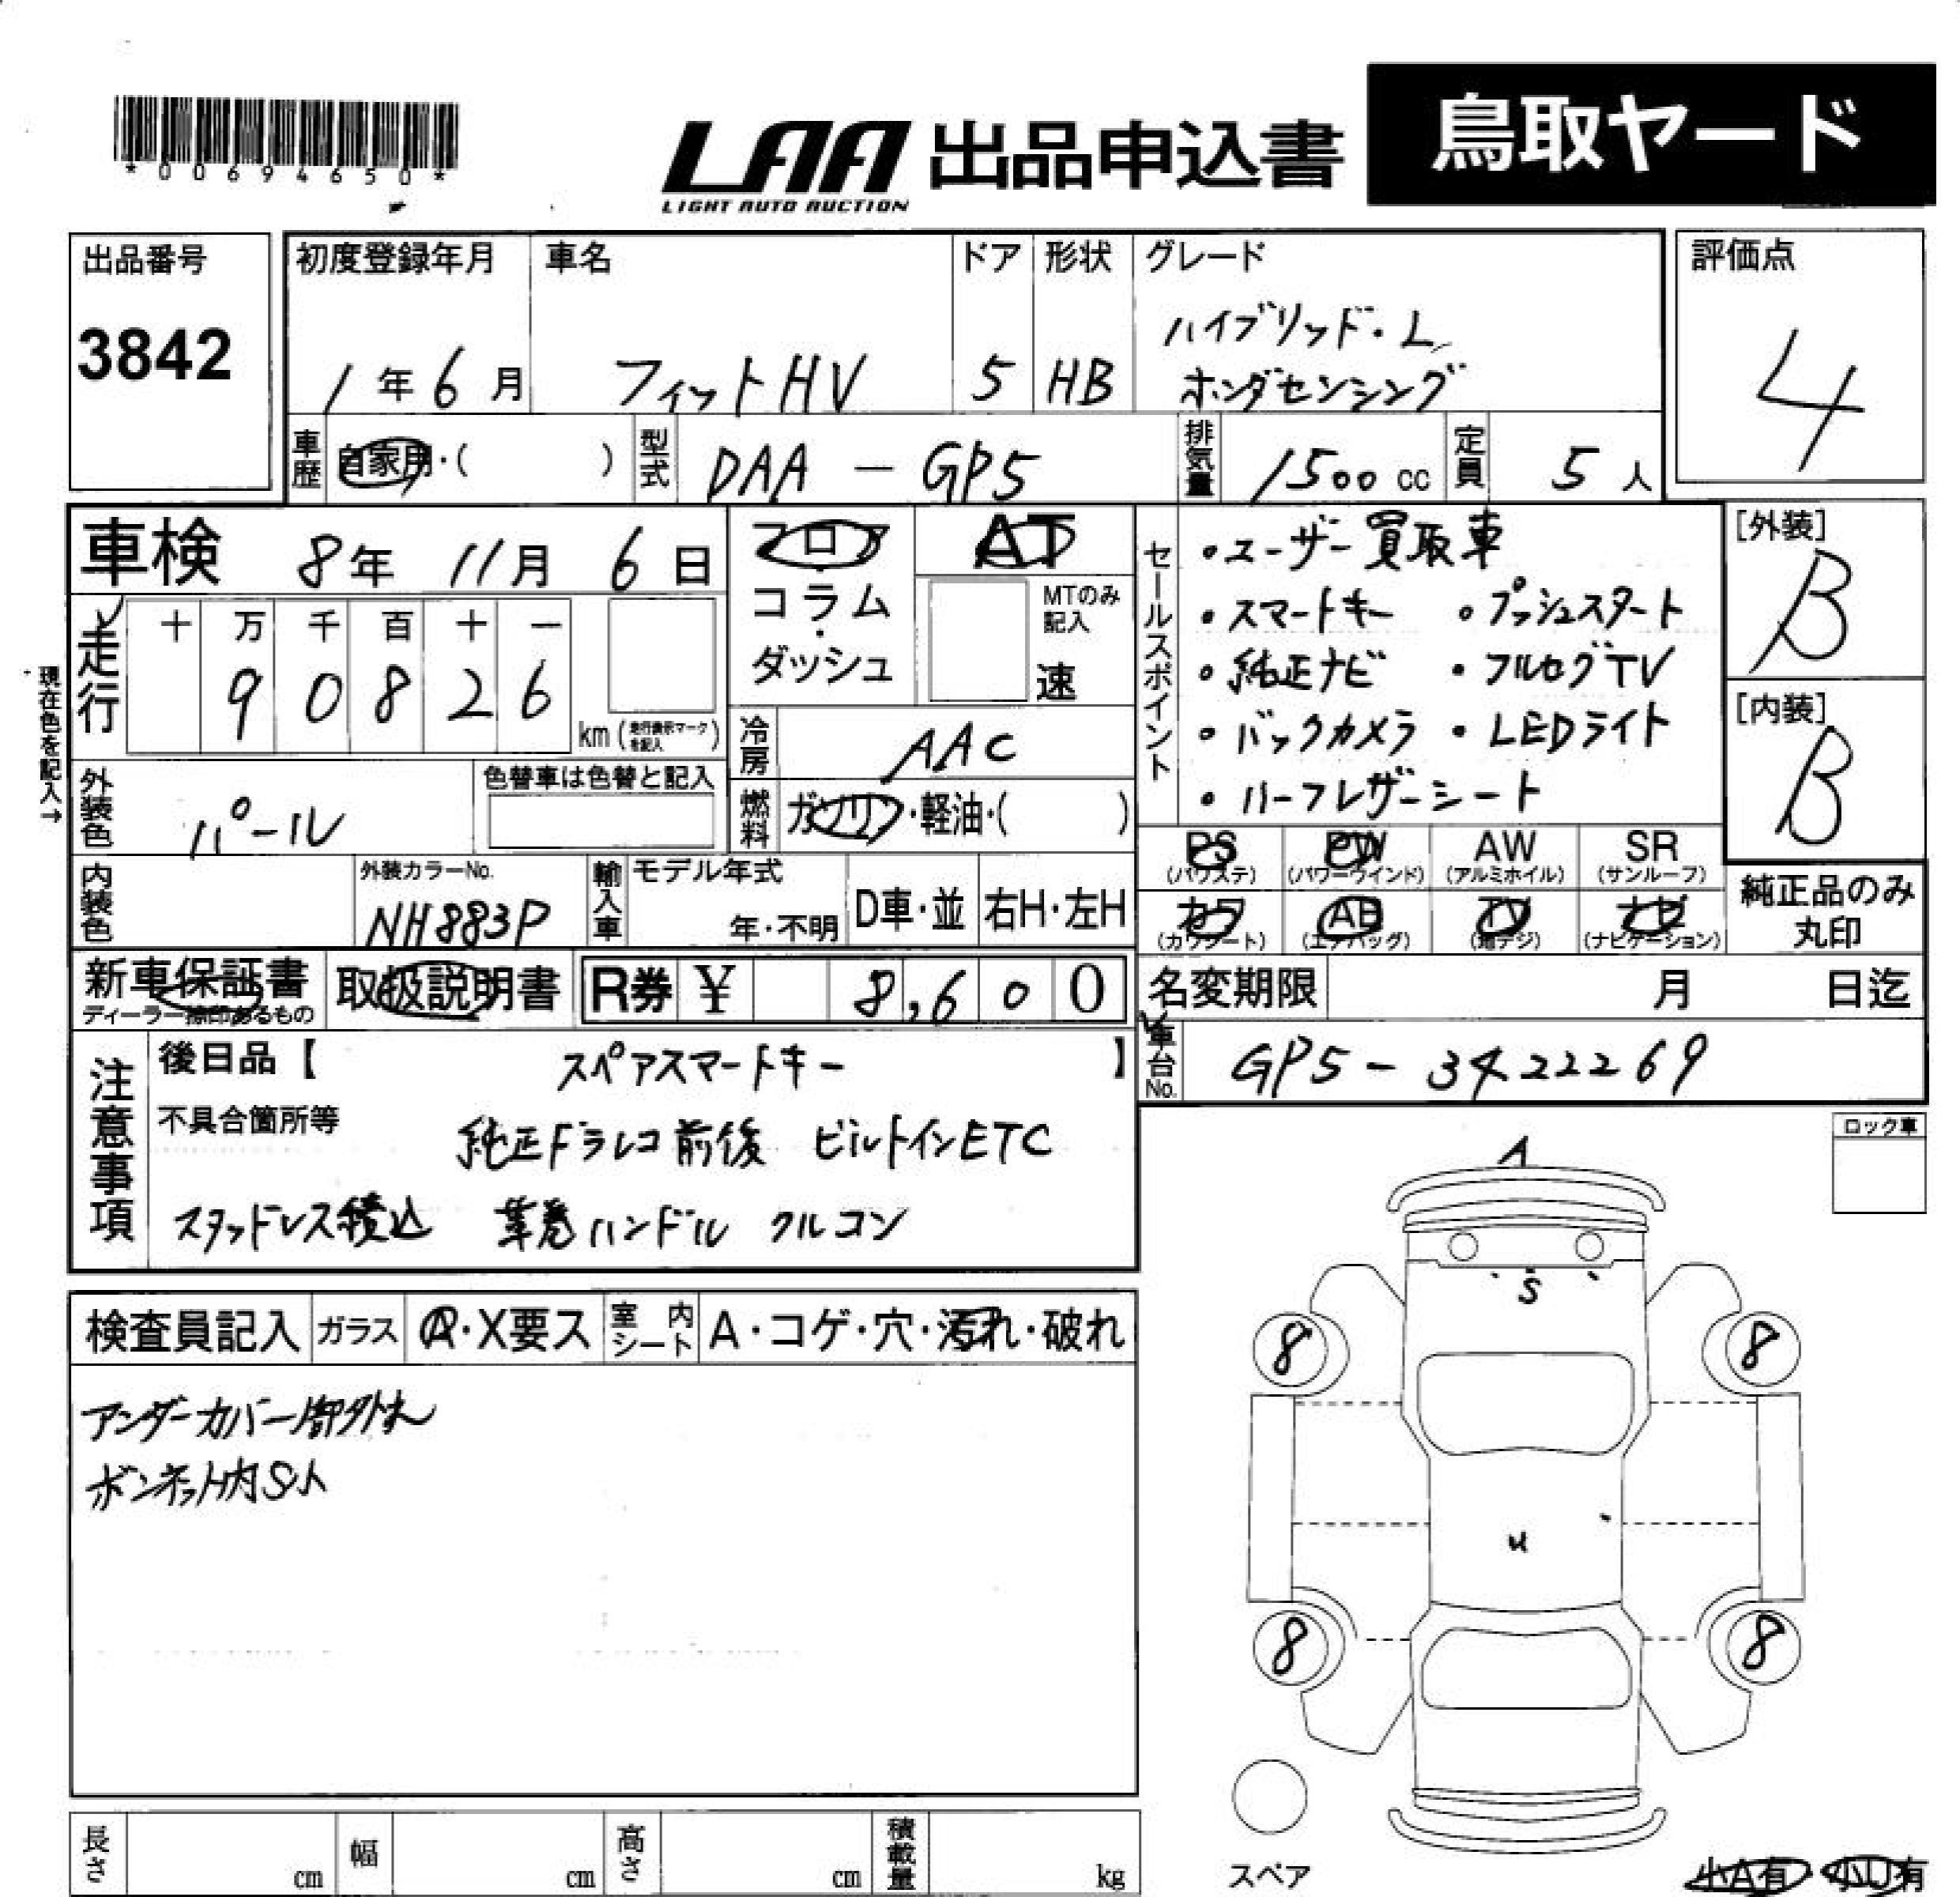 *00694650*
LAA 出品申込書 鳥取ヤード
LIGHT AUTO AUCTION
出品番号 3842
初度登録年月 1年6月
車名 フィットHV
ドア 5
形状 HB
グレード ハイブリッド・L
ホンダセンシング
評価点 4
車歴 自家用・( )
型式 DAA-GP5
排気量 1500cc
定員 5人
車検 8年 11月 6日
走行 十 万 千 百 十 一
9 0 8 2 6
km(走行表示マークを記入)
現在色を記入→
フロア・コラム・ダッシュ
AT
MTのみ記入
速
冷房 AAC
燃料 ガソリン・軽油・( )
外装色 パール
色替車は色替と記入
内装色
外装カラーNo. NH883P
輸入車
モデル年式 年・不明
D車・並
右H・左H
セールスポイント
・ユーザー買取車
・スマートキー ・プッシュスタート
・純正ナビ ・フルセグTV
・バックカメラ ・LEDライト
・ハーフレザーシート
[外装] B
[内装] B
PS (パワステ)
PW (パワーウインド)
AW (アルミホイル)
SR (サンルーフ)
カワ (カワシート)
AB (エアバッグ)
TV (地デジ)
ナビ (ナビゲーション)
純正品のみ丸印
新車保証書
ディーラー捺印あるもの
取扱説明書
R券 ¥ 8,600
名変期限 月 日迄
車台No. GP5-3422269
注意事項
後日品【 スペアスマートキー 】
不具合箇所等
純正ドラレコ前後 ビルトインETC
スタッドレス積込 革巻ハンドル クルコン
ロック車
検査員記入
ガラス A・X要ス
室内シート A・コゲ・穴・汚れ・破れ
アンダーカバー一部外れ
ボンネット内Sト
A
S
8 8
U
8 8
スペア
小A有・小U有
長さ cm
幅 cm
高さ cm
積載量 kg